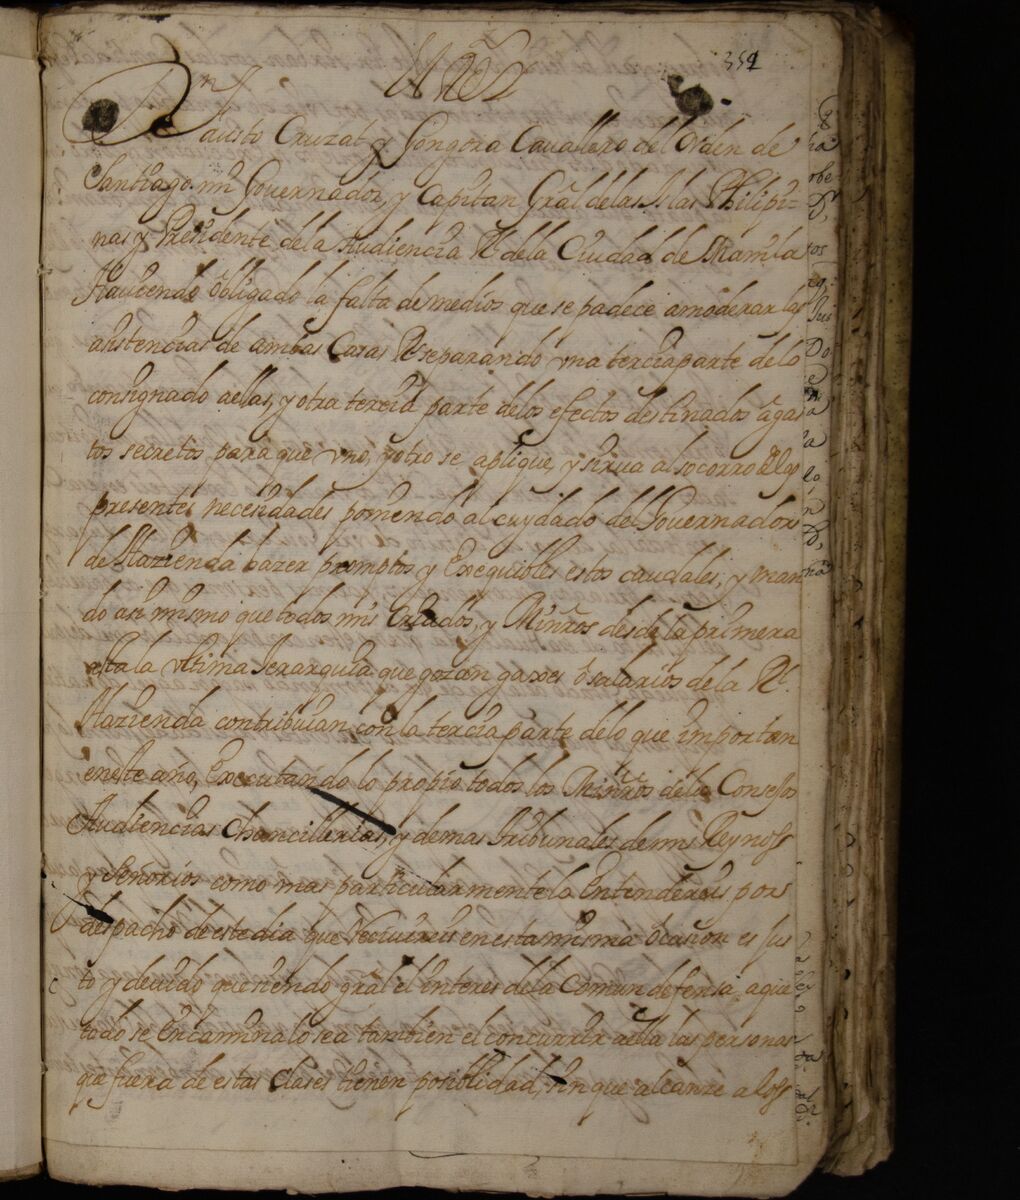 El Rey
351
Dn
Fausto Cruzat y Gongora Cavallero del Orden de
Santiago mi Governador, y Capitan Gral de las Islas Philipi=
nas y Presidente de la Audiencia Rl. de la Ciudad de Manila
Haviendo obligado la falta de medios que se padece a moderar las
asistencias de ambas Casas Rs separando una tercia parte de lo
consignado a ellas, y otra tercia parte de los efectos destinados â gas
tos secretos para que uno, y otro se aplique, y sirva al socorro de las
presentes necesidades poniendo al cuydado del Governador
de Hazienda hazer promptos y Exequibles estos caudales, y man
do asi mismo que todos mis Criados, y Minros desde la primera
asta la ultima Jerarquia que gozan gaxes ô salarios de la Rl.
Hazienda contribuian con la tercia parte de lo que importan
en este año, Executando lo propio todos los Minros de los Consejos
Audiencias Chancillerias, y demas tribunales de mis Reynos
y señorios como mas particularmente lo Entendereis por
despacho de este dia que Recivireis en esta misma ôcasion es Jus
to y devido que siendo gral el interes de la Comun defensa, a que
todo se Encamina lo sea tambien el concurrir a ella las personas
que fuera de estas Clases tienen posiblidad, sin que alcanze a los